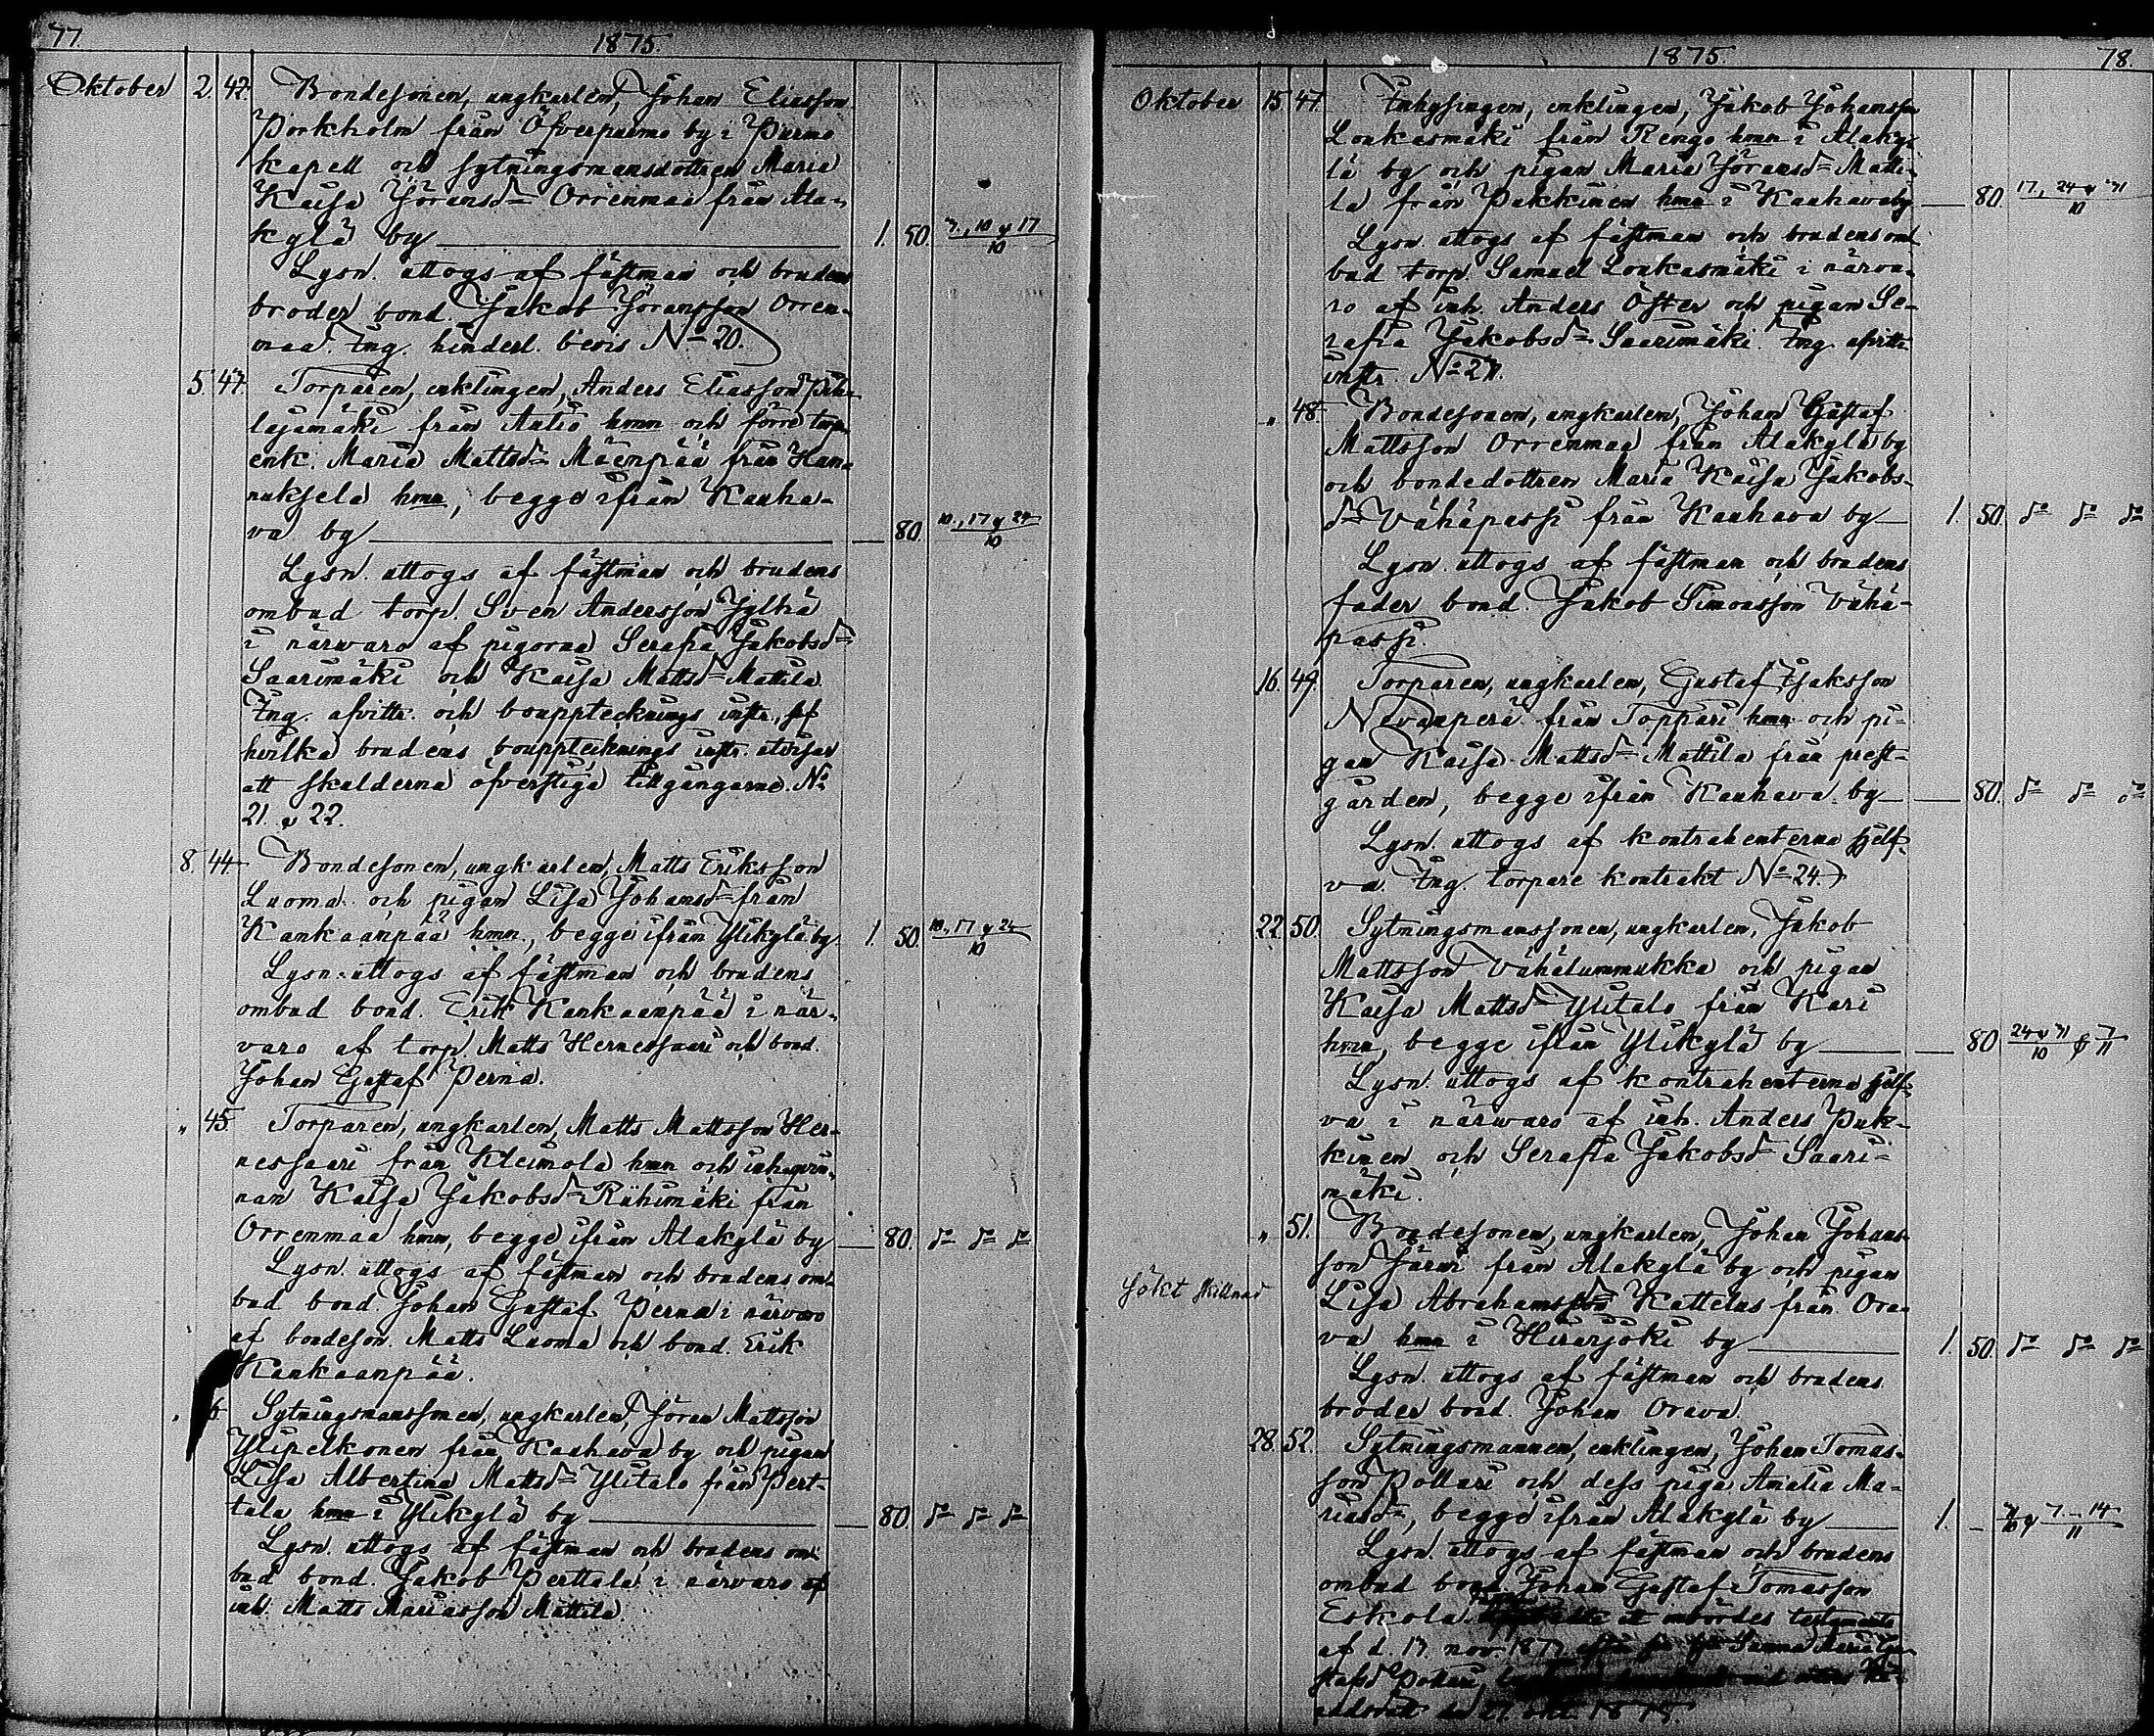 77.
1875.
Oktober 2. 42. Bondesonen, ungkarlen, Johan Eliasson
Porkholm från Öfverpurmo by i Purmo
kapell och sytningsmansdottren Maria
Kaisa Jöransd= Orrenmaa från Ala-
kylä by 1. 50. 3., 10 & 17/10
Lysn. uttogs af fästman och brudens
broder bond. Jakob Jöransson Orren-
maa. Ing. hinderl. bevis No 20.
5. 43. Torparen, enklingen, Anders Eliasson
lajamäki från Antio hmn och förre torp.
enk. Maria Mattsd= Mäenpää från Han-
nuksela hmn, begge ifrån Kauha-
va by 80. 10., 17 & 24/10
Lysn. uttogs af fästman och brudens
ombud torp. Sven Andersson Jylhä
i närwaro af pigorna Serafia Jakobsd=
Saarimäki och Kaisa Mattsd= Mattila.
Ing. afvittr. och bouppteknings instr., af
hvilka brudens bouppteknings instr. utvisar
att skulderna öfverstiga tillgångarne. No
21. & 22.
8. 44. Bondesonen, ungkarlen, Matts Eriksson
Luoma och pigan Lisa Johansd= från
Kankaanpää hmn., begge ifrån Ylikylä by. 1. 50. 10., 17 & 24/10
Lysn. uttogs af fästman och brudens
ombud bond. Erik Kankaanpää i när-
varo af torp. Matts Hernessaari och bond.
Johan Gustaf Perna.
" 45. Torparen, ungkarlen, Matts Mattsson Her-
nessaari från Kleimola hmn och inh.qvin-
nan Kaisa Jakobsd= Riihimäki från
Orrenmaa hmn, begge ifrån Alakylä by 80. do do do
Lysn. uttogs af fästman och brudens om-
bud bond. Johan Gustaf Perna i närvaro
af bondeson. Matts Luoma och bond. Erik
Kankaanpää.
" 6 Sytningsmanssonen, ungkarlen, Jöran Mattsson
Ylipelkonen från Kauhava by och pigan
Lisa Albertina Mattsd= Ylitalo från Pert-
tala hmn i Ylikylä by 80. do do do
Lysn. uttogs af fästman och brudens om-
bud bond. Jakob Perttala i närvaro af
inh. Matts Mariasson Mattila.
1875.
78.
Oktober 15. 47. Inhysingen, enklingen, Jakob Johansson
Loukasmäki från Rengo hmn i Alaky-
lä by och pigan Maria Jöransd= Matti-
la från Pukkinen hmn i Kauhava by 80. 17., 24 & 31/10
Lysn. uttogs af fästman och brudens om-
bud torp. Samuel Loukasmäki i närva-
ro af inh. Anders Öster och pigan Se-
rafia Jakobsd= Saarimäki. Ing. afvittr.
instr. No 23.
" 48. Bondesonen, ungkarlen, Johan Gustaf
Mattsson Orrenmaa från Alakylä by
och bondedottren Maria Kaisa Jakobs-
d= Vähäpassi från Kauhava by 1. 50. do do do
Lysn. uttogs af fästman och brudens
fader bond. Jakob Simonsson Vähä-
passi.
16. 49. Torparen, ungkarlen, Gustaf Isaksson
Nevanperä från Toppari hmn och pi-
gan Kaisa Mattsd= Mattila från prest-
gården, begge ifrån Kauhava by 80. do do do
Lysn. uttogs af kontrahenterna sjelf-
va. Ing. torpare kontrakt No 24.
22. 50. Sytningsmanssonen, ungkarlen, Jakob
Mattsson Vähälummukka och pigan
Kaisa Mattsd= Ylitalo från Kari
hmn, begge ifrån Ylikylä by 80. 24 & 31/10 & 7/11
Lysn. uttogs af kontrahenterna sjelf-
va i närwaro af inh. Anders Puk-
kinen och Serafia Jakobsd= Saari-
mäki.
" 51. Bondesonen, ungkarlen, Johan Johans-
son Järvi från Alakylä by och pigan
Sökt skillnad
Lisa Abrahamsd= Kattelus från Ora-
va hmn i Hirvijoki by 1. 50. do do do
Lysn. uttogs af fästman och brudens
broder bond. Johan Orava.
28. 52. Sytningsmannen, enklingen, Johan Tomas-
son Pollari och dess piga Amalia Ma-
riasd=, begge ifrån Alakylä by 1. - 31/10 & 7. - 14/11
Lysn. uttogs af fästman och brudens
ombud bond. Johan Gustaf Tomasson
Eskola. testamente
af d. 17 nov. Sanna Maria
Pollari,
1875.